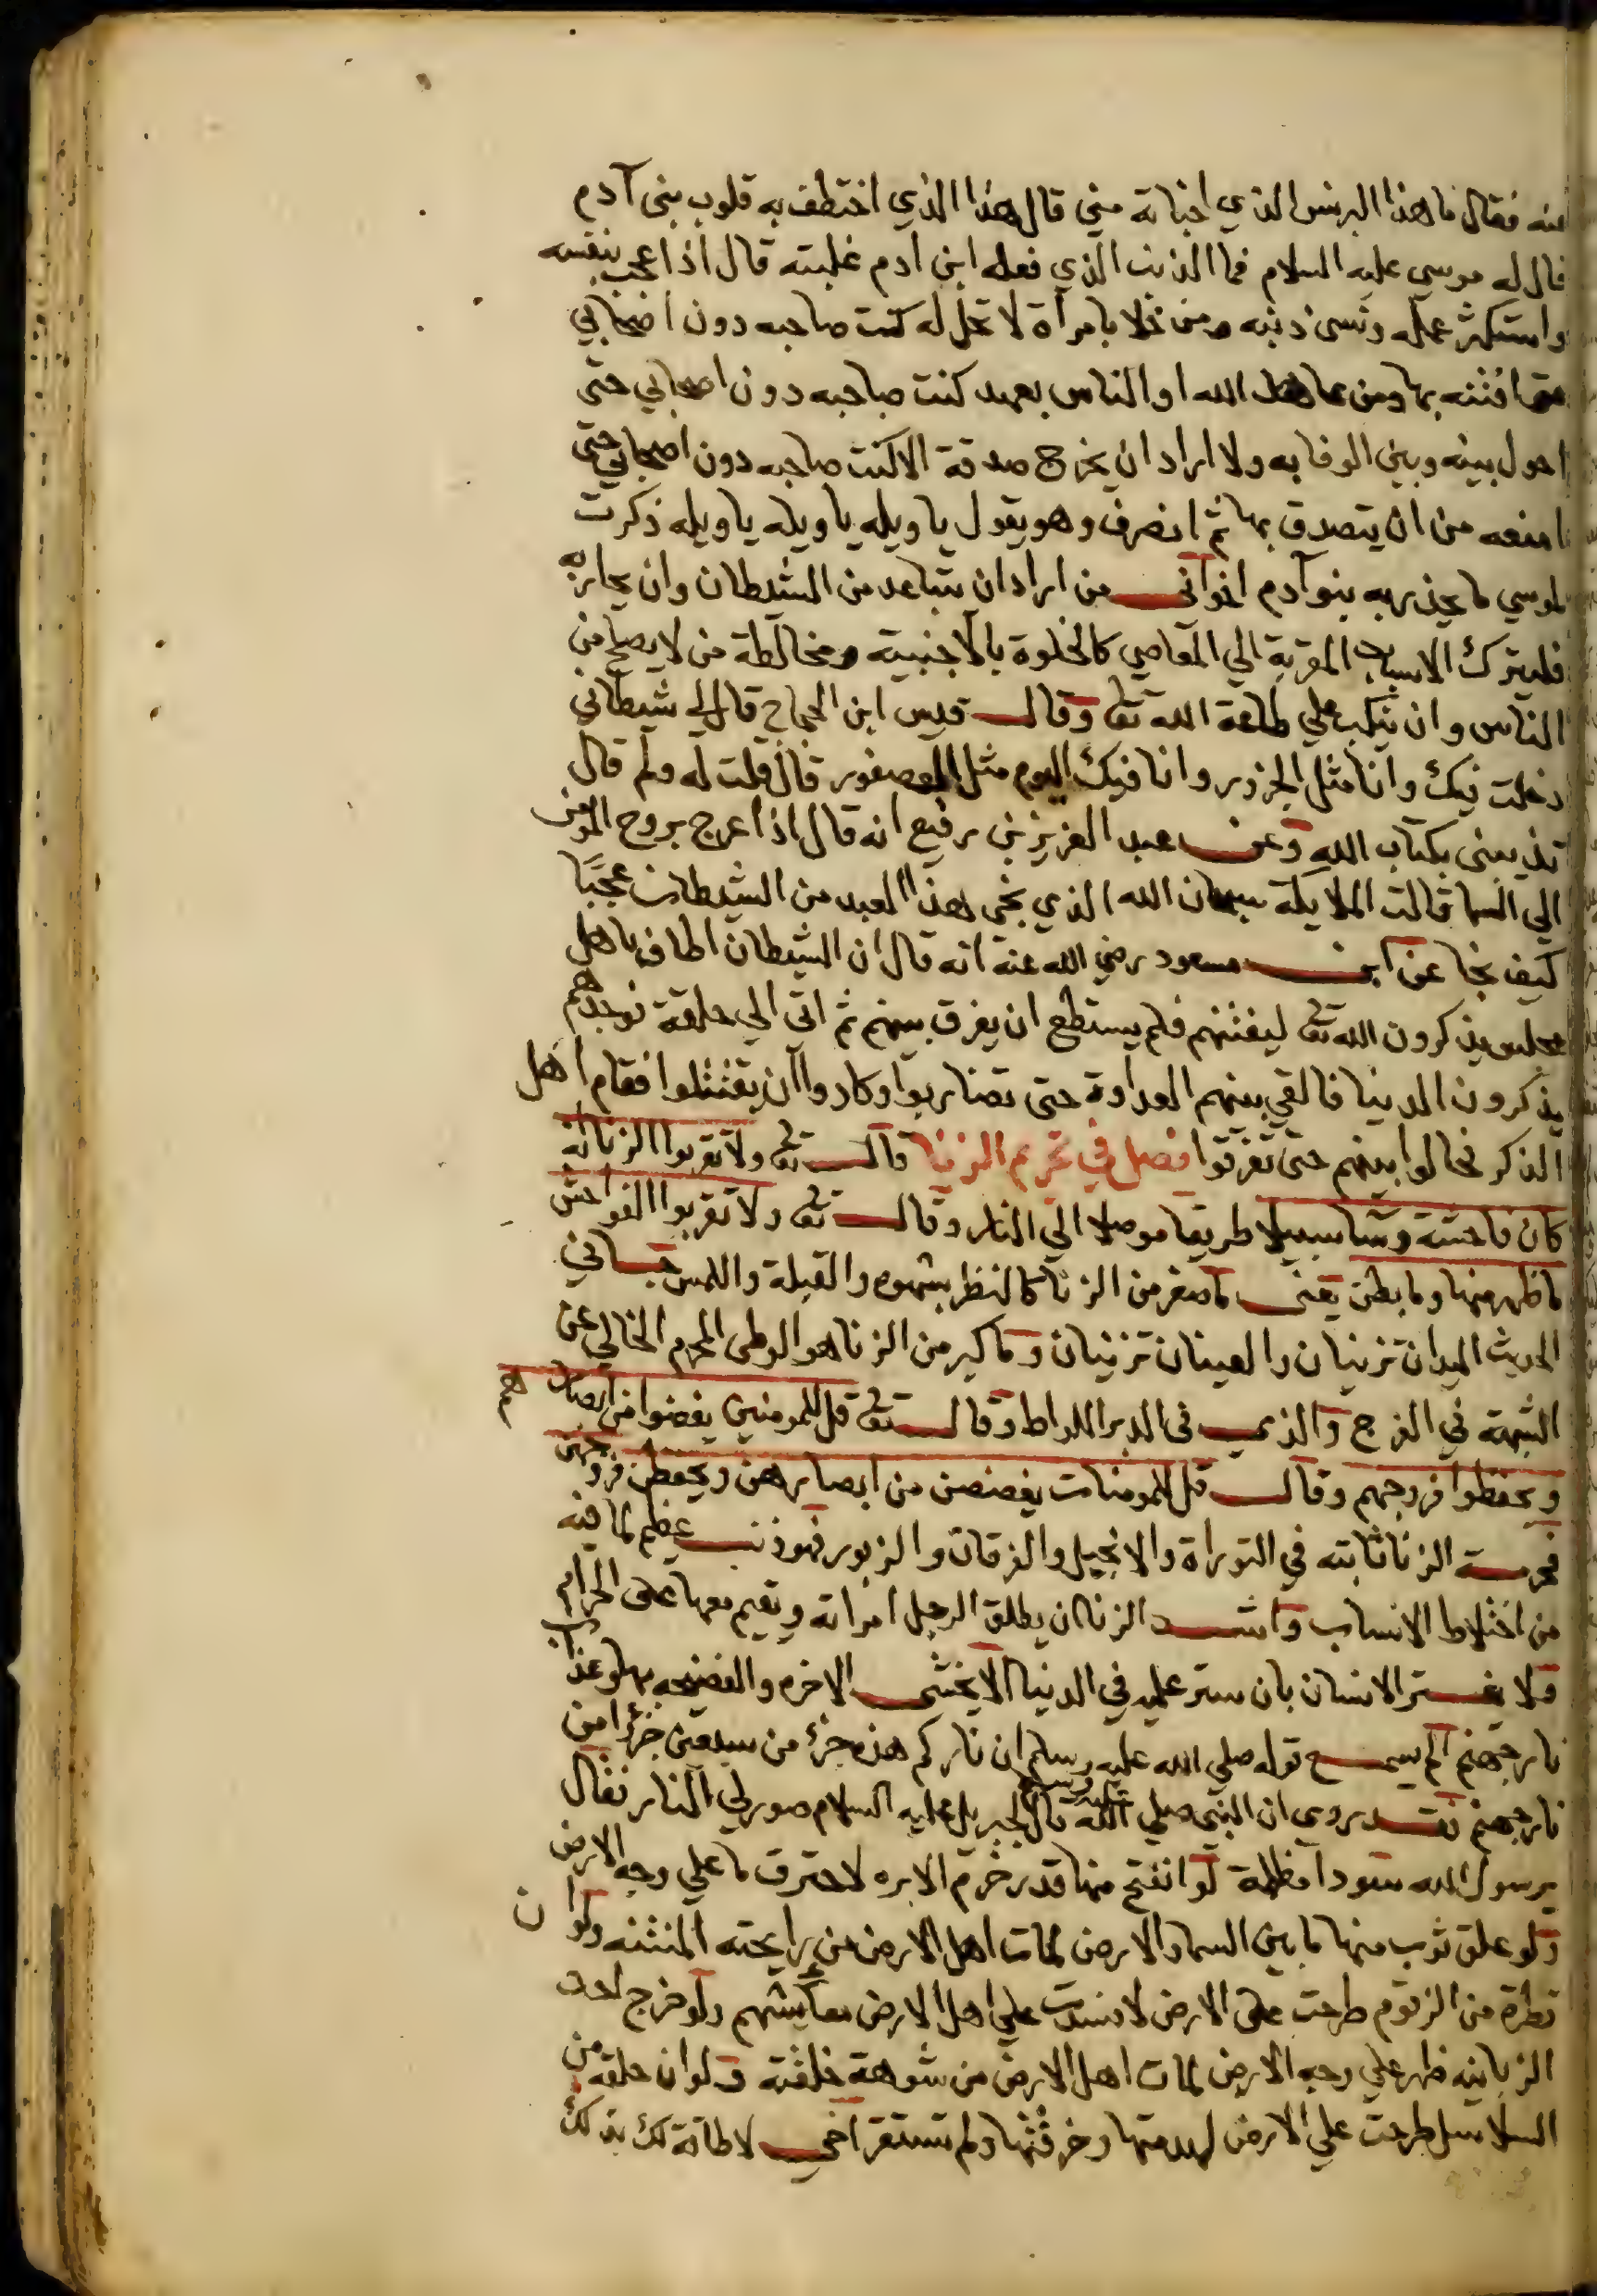 عنه فقال ما هذا البرنس الذي اخباته مني قال هذا الذي اختطف به قلوب بني آدم
قال له موسي عليه السلام فما الذنب الذي فعله ابن ادم غلبته قال اذا اعجب بنفسه
واستكثر عمله ونسى ذنبه ومن خلا بامرأة لا تحل له كنت صاحبه دون اصحابي
حتى افتنه بها ومن عاهد الله او الناس بعهد كنت صاحبه دون اصحابي حتى
احول بينه وبين الوفا به ولا اراد ان يخرج صدقة الا كنت صاحبه دون اصحابي حتى
امنعه من ان يتصدق بها ثم انصرف وهو يقول يا ويله يا ويله يا ويله ذكرت
لموسي ما يحذر به بنو آدم اخواني من اراد ان يتباعد من الشيطان وان يحاربه
فليترك الاسباب المقربة الي المعاصي كالخلوة بالاجنبية ومخالطة من لا يصلح من
الناس وان ينكب علي طاعة الله تعا وقال قيس ابن الحجاج قال لي شيطاني
دخلت فيك وانا مثل الجزور وانا فيك اليوم مثل العصفور قال قلت له ولم قال
تذيبني بكتاب الله وعن عبد العزيز بن رفيع انه قال اذا عرج بروح المومن
الي السما قالت الملايكة سبحان الله الذي نجى هذا العبد من الشيطان عجبًا
كيف نجا عن ابن مسعود رضي الله عنه انه قال ان الشيطان اطاف باهل
مجلس يذكرون الله تعا ليفتنهم فلم يستطع ان يفرق بينهم ثم اتى الي حلقة فوجدهم
يذكرون الدينا فالقي بينهم العداوة حتى تضاربوا وكادوا ان يقتتلوا فقام اهل
الذكر فحالوا بينهم حتى تفرقوا فصل في تحريم الزنا قال تعا ولا تقربوا الزنا انه
كان فاحشة وسا سبيلا طريقا موصلا الي النار وقال تعا ولا تقربوا الفواحش
ما ظهر منها وما بطن يعني ما صغر من الزنا كالنظر بشهوه والقبلة واللمس في
الحديث اليدان تزنيان والعينان تزنيان وما كبر من الزنا هو الوطى المحرم الخالي عن
الشبهة في الفرج والذي في الدبر اللواط وقال تعا قل للمومنين يغضوا من ابصارهم
ويحفظوا فروجهم وقال قل للمومنات يغضضن من ابصارهن ويحفظن فروجهن
فحرمة الزنا ثابته في التوراة والانجيل والفرقان والزبور فهو ذنب عظيم لما فيه
من اختلاط الانساب واشد الزنا ان يطلق الرجل امراته ويقيم معها على الحرام
ولا يغتر الانسان بان ستر عليه في الدنيا الا يخشى الاخره والفضيحه بها وعذاب
نار جهنم الم يسمع قوله صلي الله عليه وسلم ان ناركم هذه جزء من سبعين جزءا من
نار جهنم فقد روي ان النبي صلي الله عليه وسلم قال لجبريل عليه السلام صور لي النار فقال
يرسول الله سودا مظلمة لو انفتح منها قدر خرم الابره لاحترق ما علي وجه الارض
ولو علق ثوب منها ما بين السما والارض لمات اهل الارض من رايحته المنتنه ولو ان
قطرة من الزقوم طرحت على الارض لافسدت علي اهل الارض معايشهم ولو خرج احد
الزبانيه ظهر علي وجه الارض لمات اهل الارض من شوهة خلقته ولو ان حلقه من
السلاسل طرحت علي الارض لهدمتها وخرقتها ولم تستقر اخي لا طاقة لك بذلك